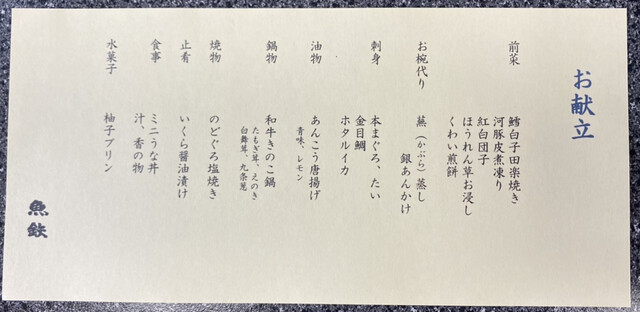 お献立
前菜
鱈白子田楽焼き
河豚皮煮凍り
紅白団子
ほうれん草お浸し
くわい煎餅
お椀代り
蕪(かぶら)蒸し
銀あんかけ
刺身
本まぐろ、たい
金目鯛
ホタルイカ
油物
あんこう唐揚げ
青味、レモン
鍋物
和牛きのこ鍋
たもぎ茸、えのき
白舞茸、九条葱
焼物
のどぐろ塩焼き
止肴
いくら醤油漬け
食事
ミニうな丼
汁、香の物
水菓子
柚子プリン
魚鉄